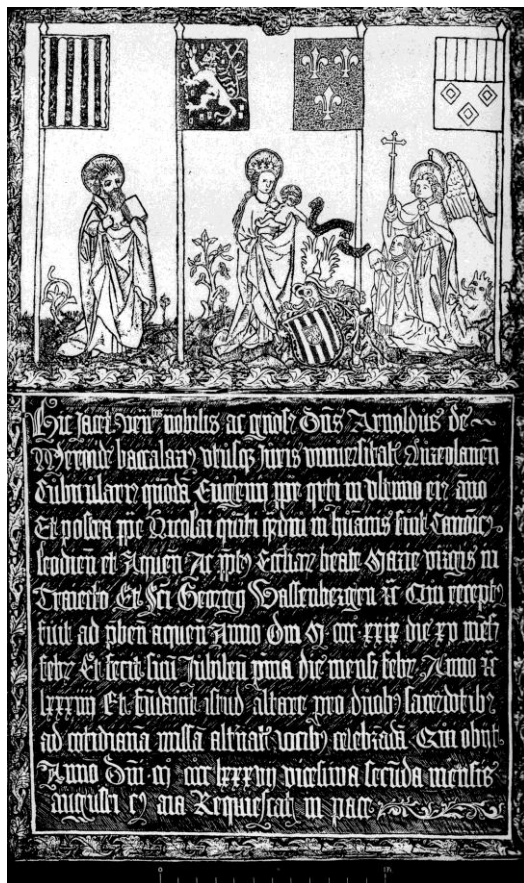 Hic Jacet venl̃ nobilis ac gnosꝰ Dn̄s Arnoldus de
Merende baccalarꝰ utriusqꝫ Juris vniversitatꝭ Aureolanen̄
Cubicularꝰ quōdā Eugenii pp̄e qrti in ultimo eiꝰ āno
Et postea pp̄e Nicolai quiti in hūanis fuit Canōicꝰ
leodien̄ et Aquen̄ Ac p̄ptꝰ Eccliarꝝ beate Marie virgīs in
Traiecto Et Sc̄i Georgij Wassenbergen̄ ꝛc̄ Qui receptꝰ
fuit ad p̄ben̄ aquen̄ Anno dn̄i Mº cccc xxix die xv mēs̄
febrꝭ Et fecit suū Jubileū pͥma die mens̄ febrꝭ Anno ꝛc̄
lxxxiiij Et fūdavit istud altare pro duobꝰ sacerdotibꝰ
ad cotidianā missā alt̄natꝭ vocibꝰ celebrādā Qui obijt
Anno Dn̄i mº cccc lxxxvij vicesima secūda mensis
augusti cꝰ aīa Requiescat in pace
0 1m